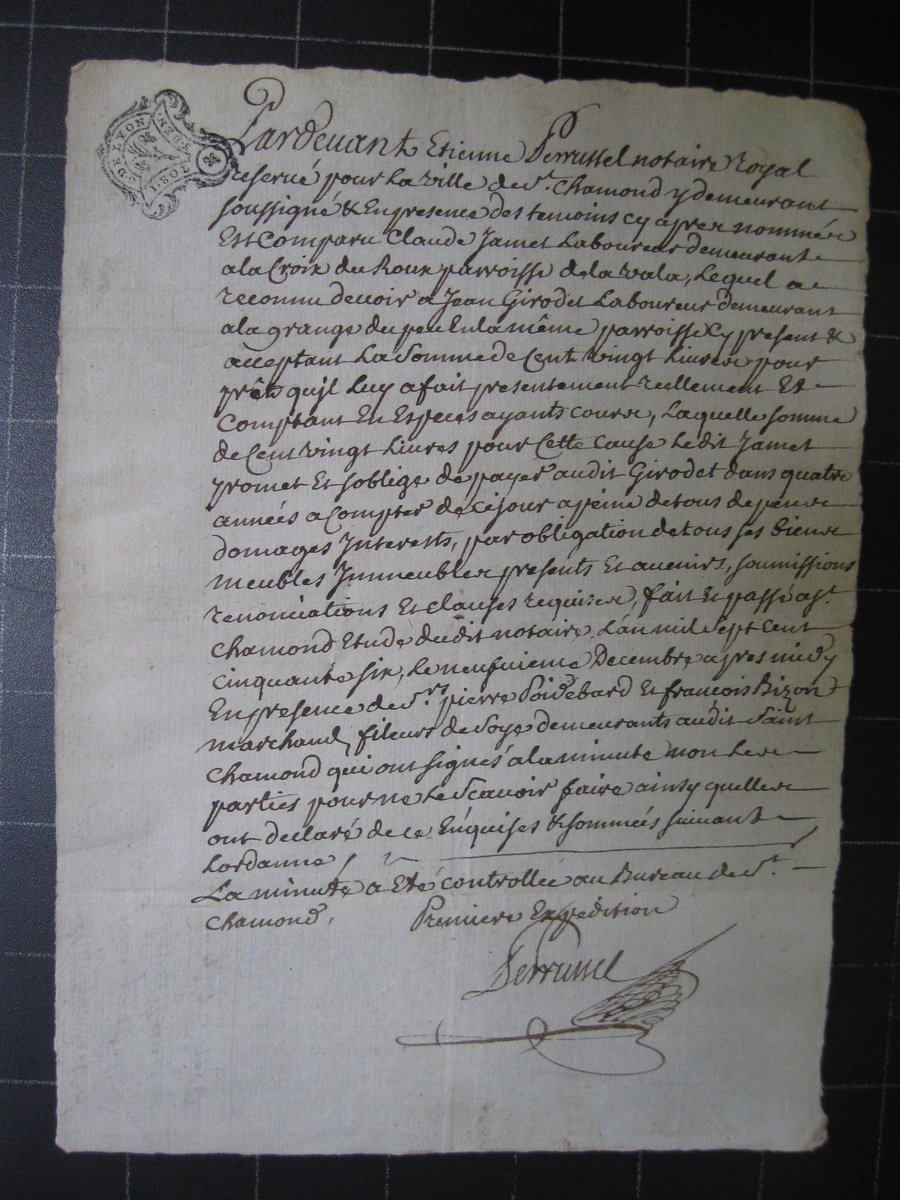 DE LYON
DEN.
Pardevant Etienne Perrussel notaire royal
reservé pour La ville de St. Chamond y demeurant
soussigné & En presence des temoins cy apres nommés
Est Comparu Claude Jamet Laboureur demeurant
a la Croix du Roux parroisse de la vala, Lequel a
reconnu devoir a Jean Girodet Laboureur demeurant
a la grange du peu En la même parroisse Cy present &
acceptant La Somme de Cent vingt Livres pour
prêt qu'jl Luy a fait presentement reellement Et
Comptant En Especes ayants cours, Laquelle somme
de Cent vingt Livres pour Cette cause Ledit Jamet
promet Et soblige de payer audit Girodet dans quatre
années a compter de ce jour a peine de tous depens
domages Jnterests, par obligation de tous ses biens
meubles Jmmeubles presents Et avenirs, soumissions
renonciations Et clauses requises, fait Et passé a St.
Chamond Etude dudit notaire, L'an mil sept cent
cinquante six, le neufvieme Decembre apres midy
En presence de Srs. pierre Poidebard Et francois Bizon
marchands fileurs de Soye demeurants audit Saint
Chamond qui ont signés a la minute non Les
parties pour ne le Scavoir faire ainsy quelles
ont declaré de ce Enquises & sommées suivant
Lordanne /
La minute a Eté controllée au Bureau de St.
Chamond,      Premiere Expedition
Perrussel